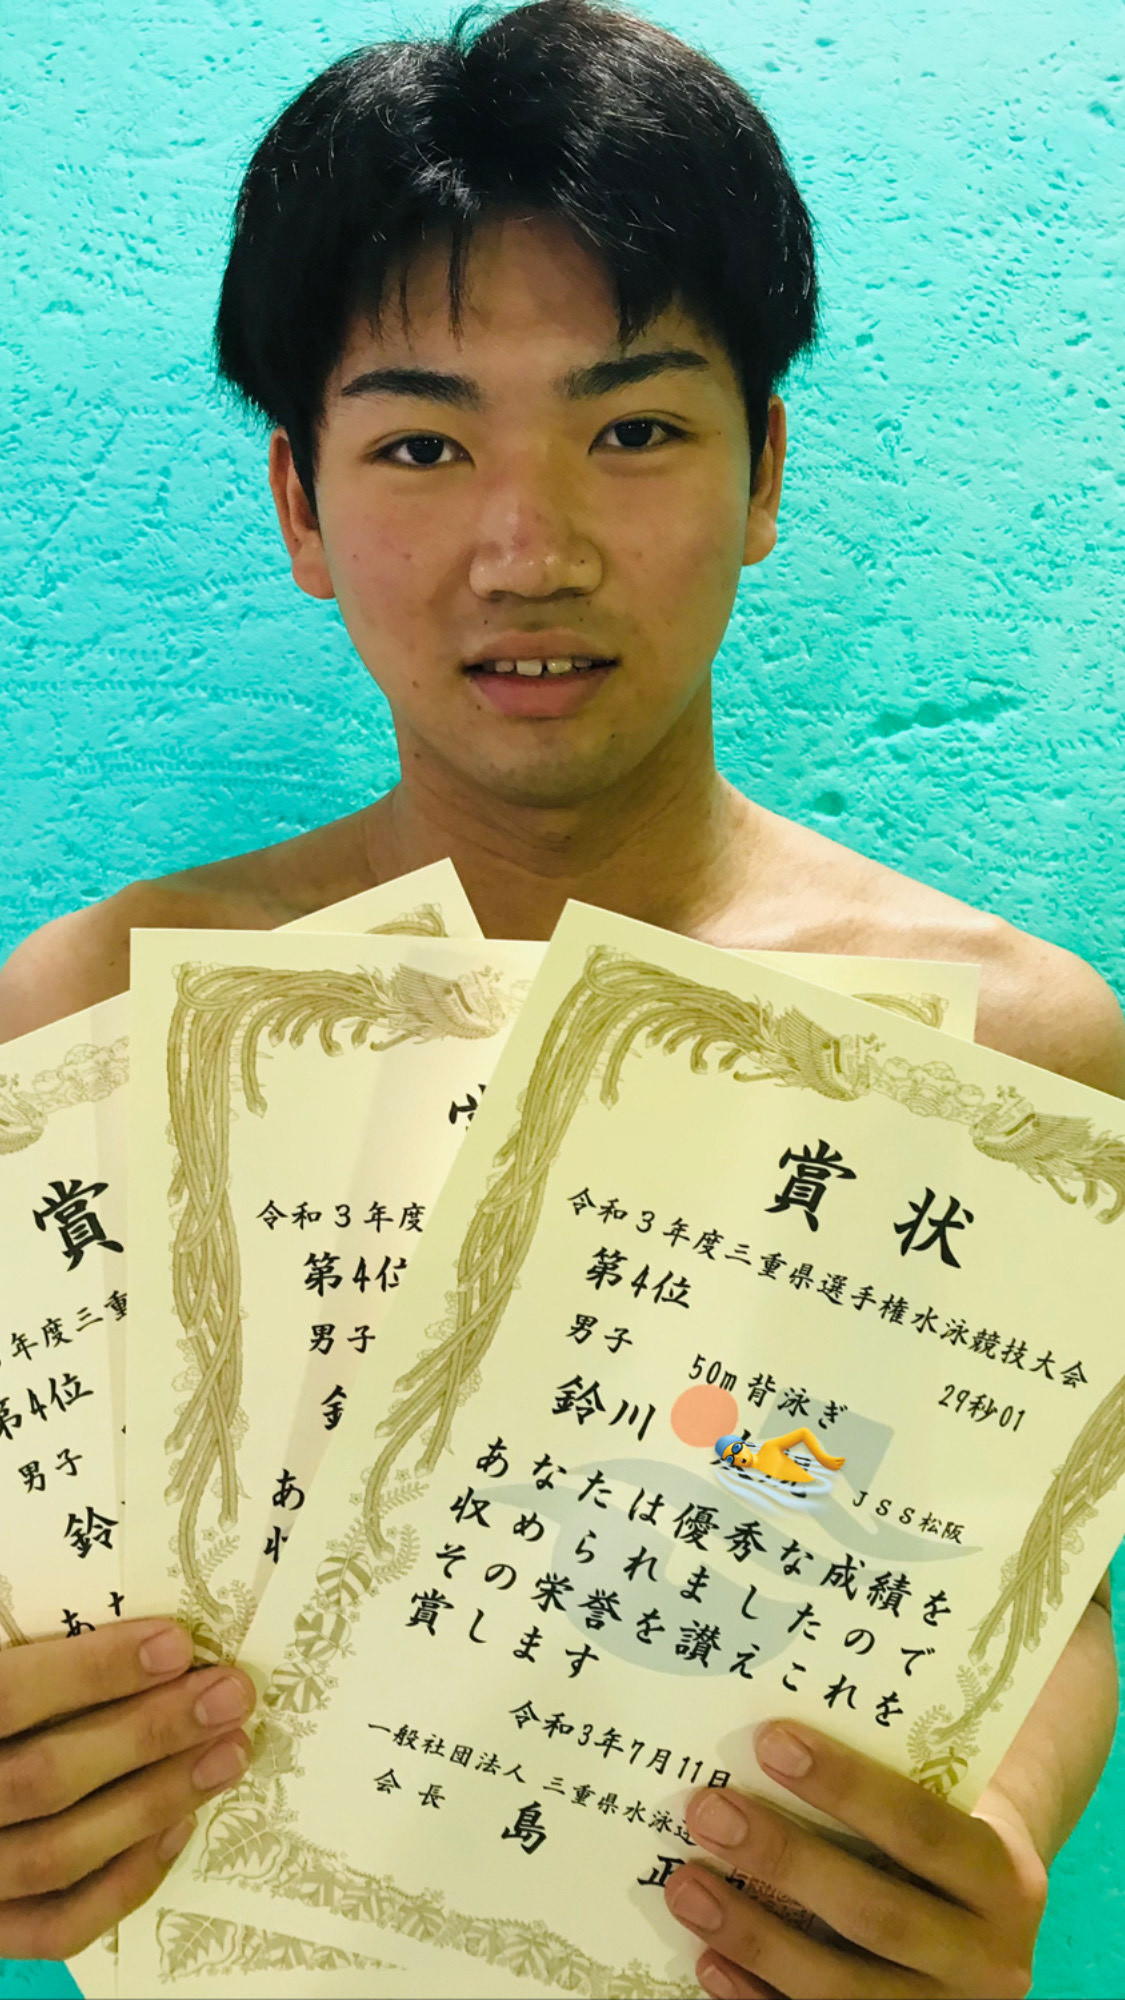 賞
年度三重
第4位
男子
鈴
あな
賞
令和3年度
第4位
男子
あ
収
賞状
令和3年度三重県選手権水泳競技大会
第4位
男子 50m背泳ぎ 29秒01
鈴川 JSS松阪
あなたは優秀な成績を
収められましたので
その栄誉を讃えこれを
賞します
令和3年7月11日
一般社団法人 三重県水泳連
会長 島 正